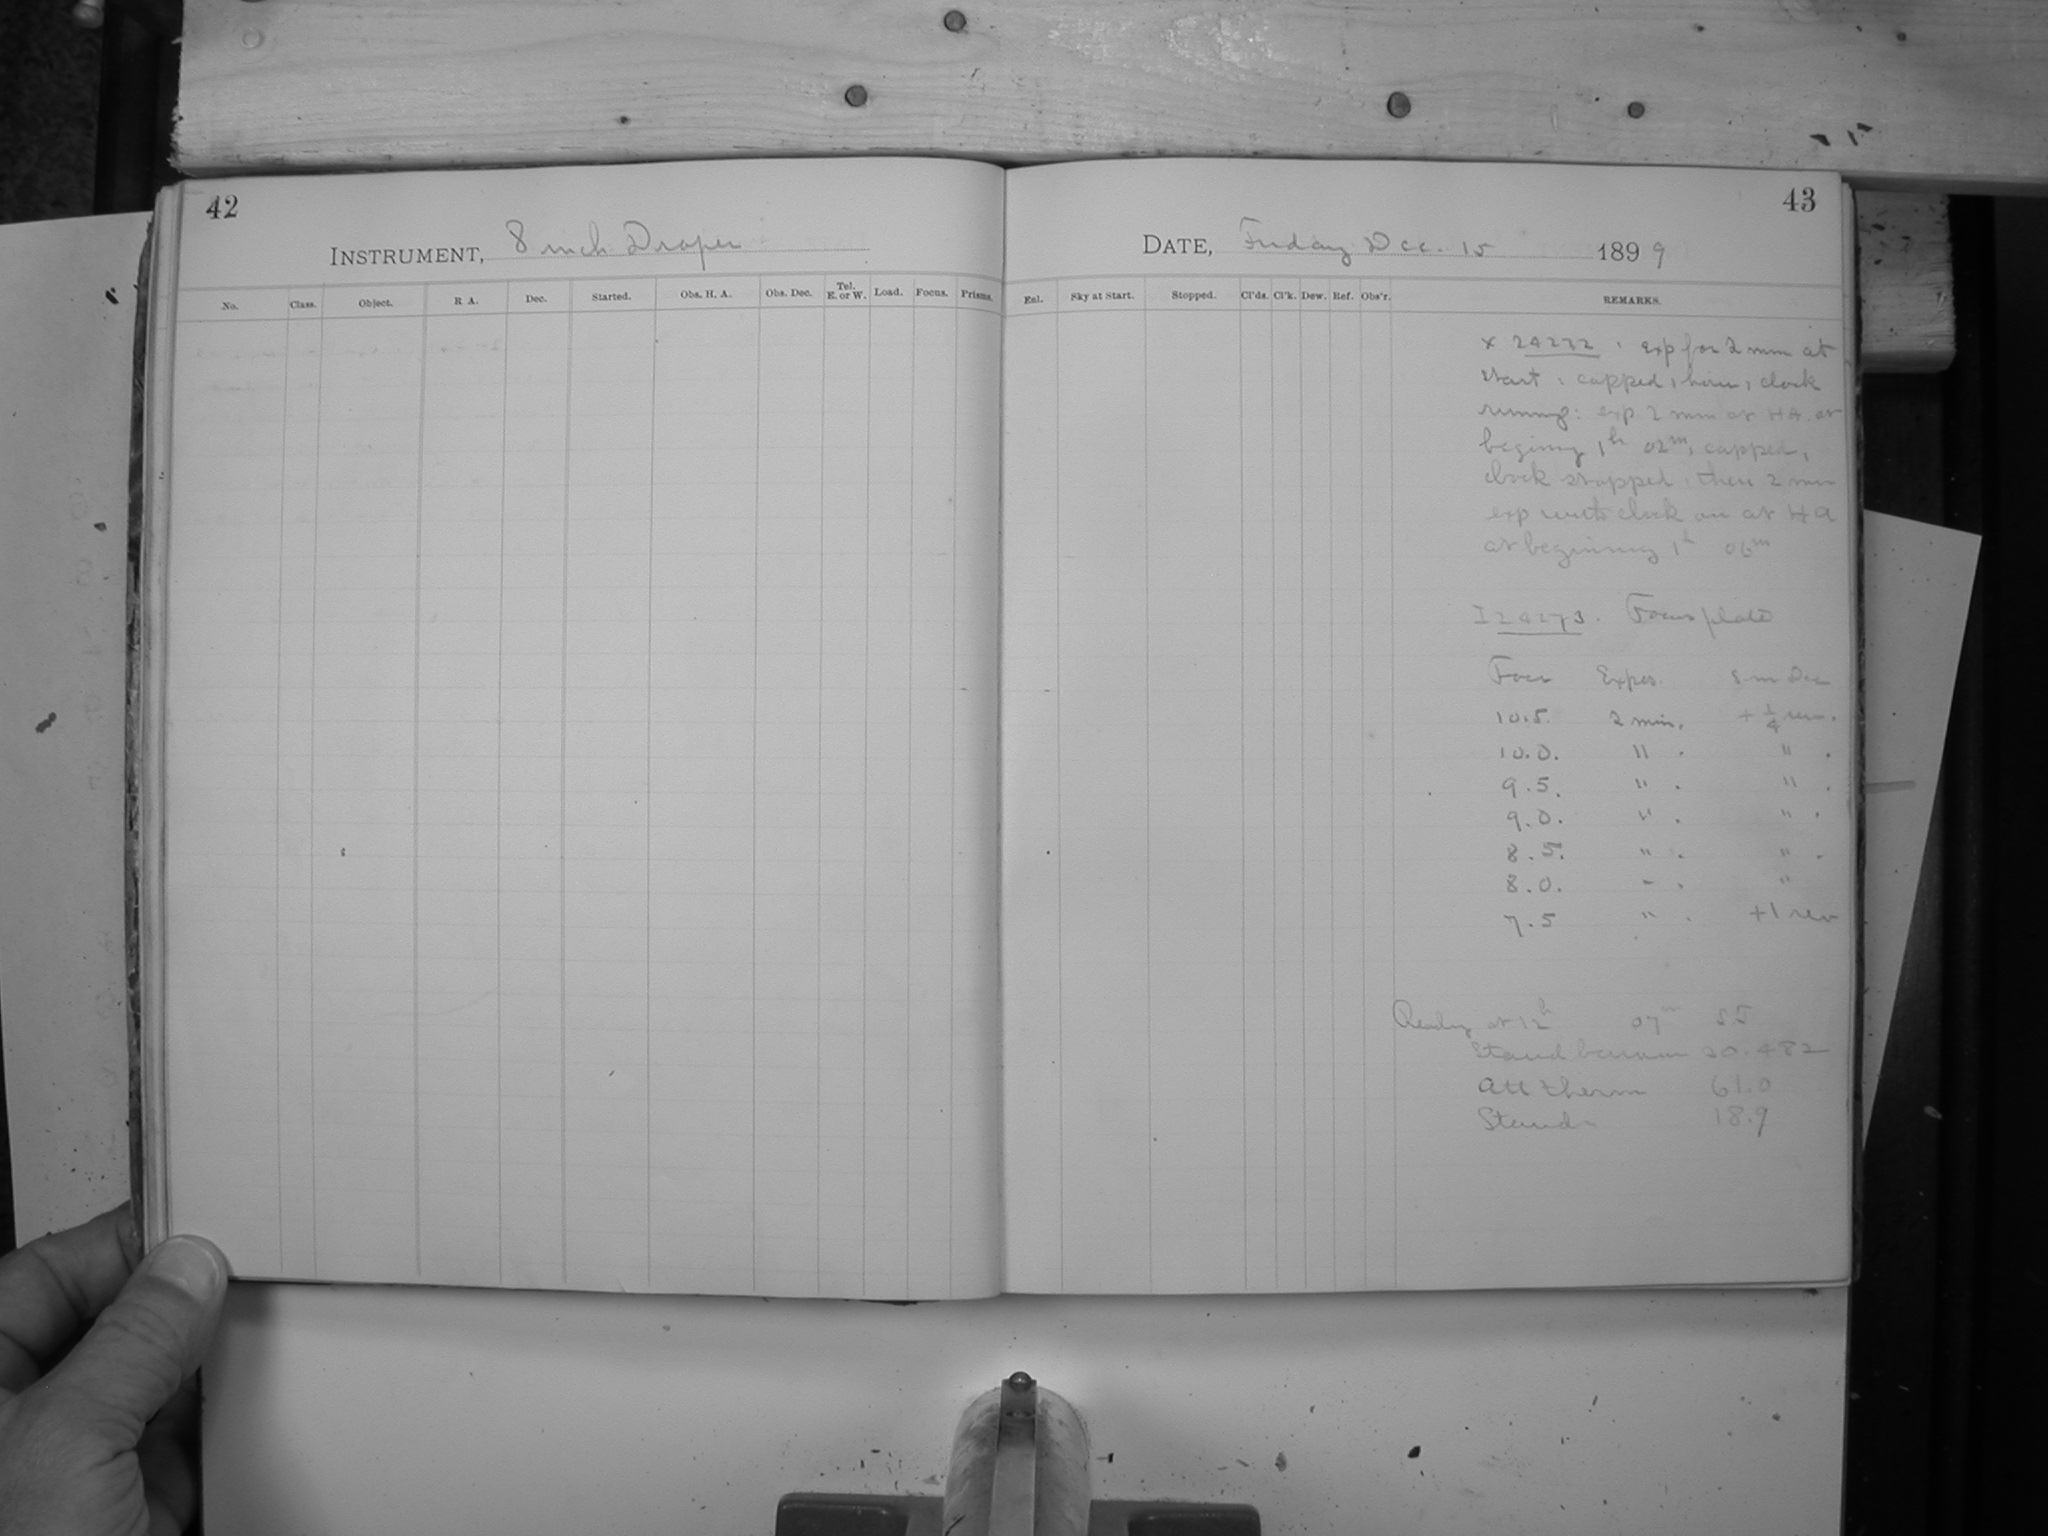 42
INSTRUMENT, 8 inch Draper
No. Class. Object. R A. Dec. Started. Obs. H. A. Obs. Dec. Tel. E. or W. Load. Focus. Prisms.
43
DATE, Friday Dec. 15 1899
Exl. Sky at Start. Stopped. Cl'ds. Cl'k. Dew. Ref. Obs'r. REMARKS.
x 24272 : exp for 2 mm at
start : capped, clock
running: exp 2 mm at HA at
begining 1h 02m, capped,
clock stopped, then 2 mm
exp with clock on at HA
at beginning 1h 06m
I 24273. Focus plate
Focus Expos. Dec
10.5. 2 min. + 1/4 rev.
10.0. " . " .
9.5. " . " .
9.0. " . " .
8.5. " . " .
8.0. " . "
7.5 " . +1 rev
Ready at 12h 07m ST
Stand barom 30.482
Att therm 61.0
Stand. 18.9